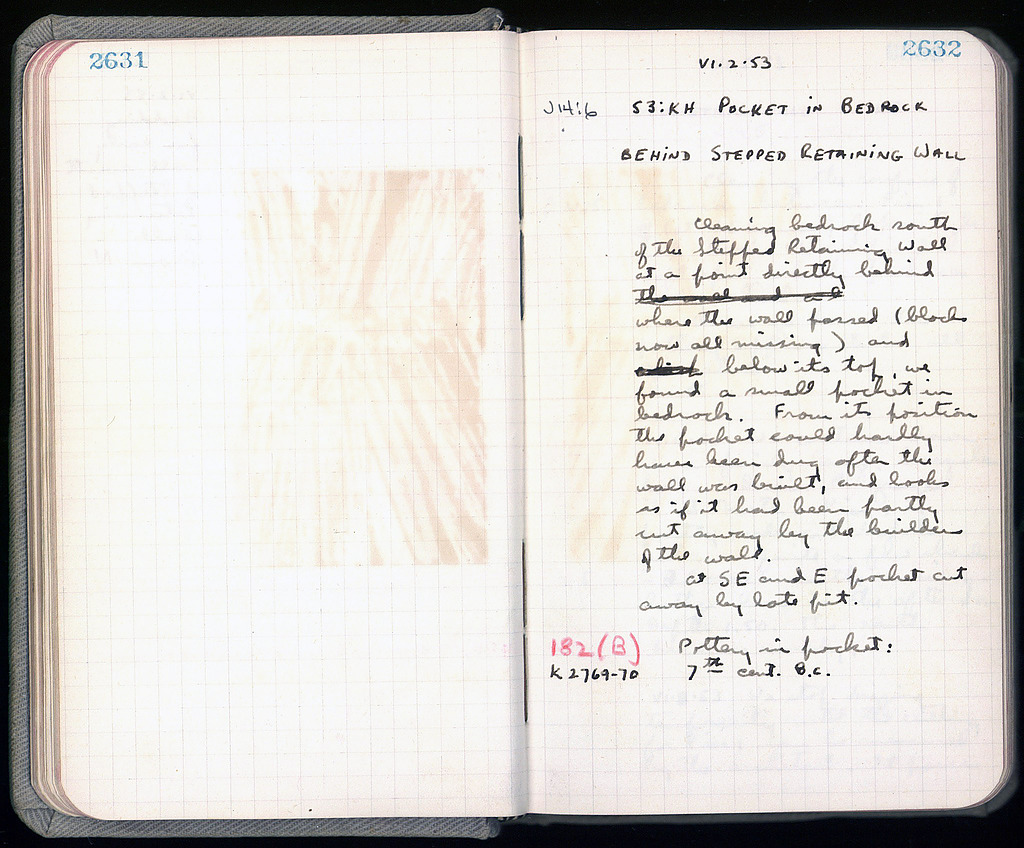 2631
2632
VI.2.53
J 14:6 53:KH POCKET IN BEDROCK
BEHIND STEPPED RETAINING WALL
Cleaning bedrock south
of the Stepped Retaining Wall
at a point directly behind
the wall and
where the wall passed (blocks
now all missing) and
below its top, we
found a small pocket in
bedrock. From its position
the pocket could hardly
have been dug after the
wall was built, and looks
as if it had been partly
cut away by the builders
of the wall.
at SE and E pocket cut
away by late pit.
182 (B) Pottery in pocket:
K 2769-70 7th cent. B.C.